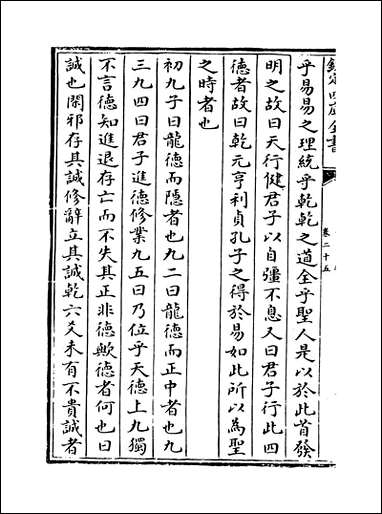 欽定四庫全書
卷二十五
乎易易之理統乎乾乾之道全乎聖人是以於此首發
明之故曰天行健君子以自彊不息又曰君子行此四
德者故曰乾元亨利貞孔子之得於易如此所以為聖
之時者也
初九子曰龍德而隱者也九二曰龍德而正中者也九
三九四曰君子進德修業九五曰乃位乎天德上九獨
不言德知進退存亡而不失其正非德歟德者何也曰
誠也閑邪存其誠修辭立其誠乾六爻未有不貴誠者